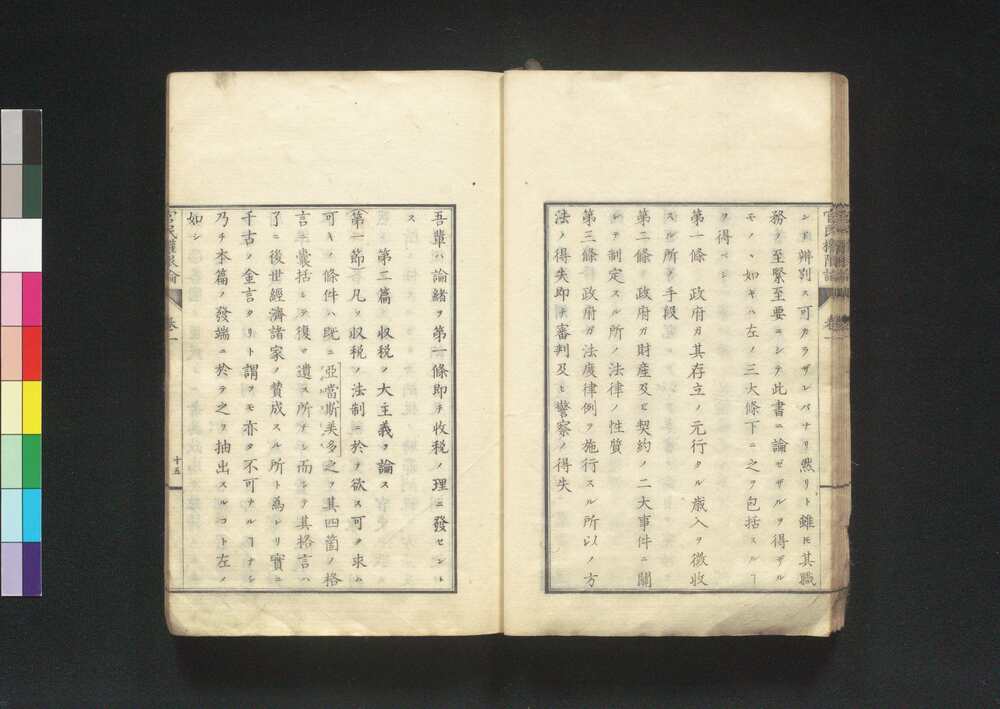 シ丁辨別ス可カラザレバナリ然リト雖モ其職
務ノ至緊至要ニシテ此書ニ論ゼザルヲ得ザル
モノヽ如キハ左ノ三大條下ニ之ヲ包括スルヿ
ヲ得ベシ
第一條 政府ガ其存立ノ元行タル歳入ヲ徴收
スル所ノ手段
第二條 政府ガ財産及ビ契約ノ二大事件ニ關
シテ制定スル所ノ法律ノ性質
第三條 政府ガ法度律例ヲ施行スル所以ノ方
法ノ得失即チ審判及ヒ警察ノ得失
吾輩ハ論緒ヲ第一條即チ收税ノ理ニ發セント
ス
第二篇 收税ノ大主義ヲ論ス
第一節 凡ソ收税ノ法制ニ於テ欲ス可ク求ム
可キノ條件ハ既ニ亞當斯美多之ヲ其四箇ノ格
言ニ囊括シテ復タ遺ス所ナシ而シテ其格言ハ
了ニ後世經濟諸家ノ賛成スル所ト為レリ實ニ
千古ノ金言タリト謂フモ亦タ不可ナルヿナシ
乃チ本篇ノ發端ニ於テ之ヲ抽出スルコト左ノ
如シ
官民權限論
卷一
十五